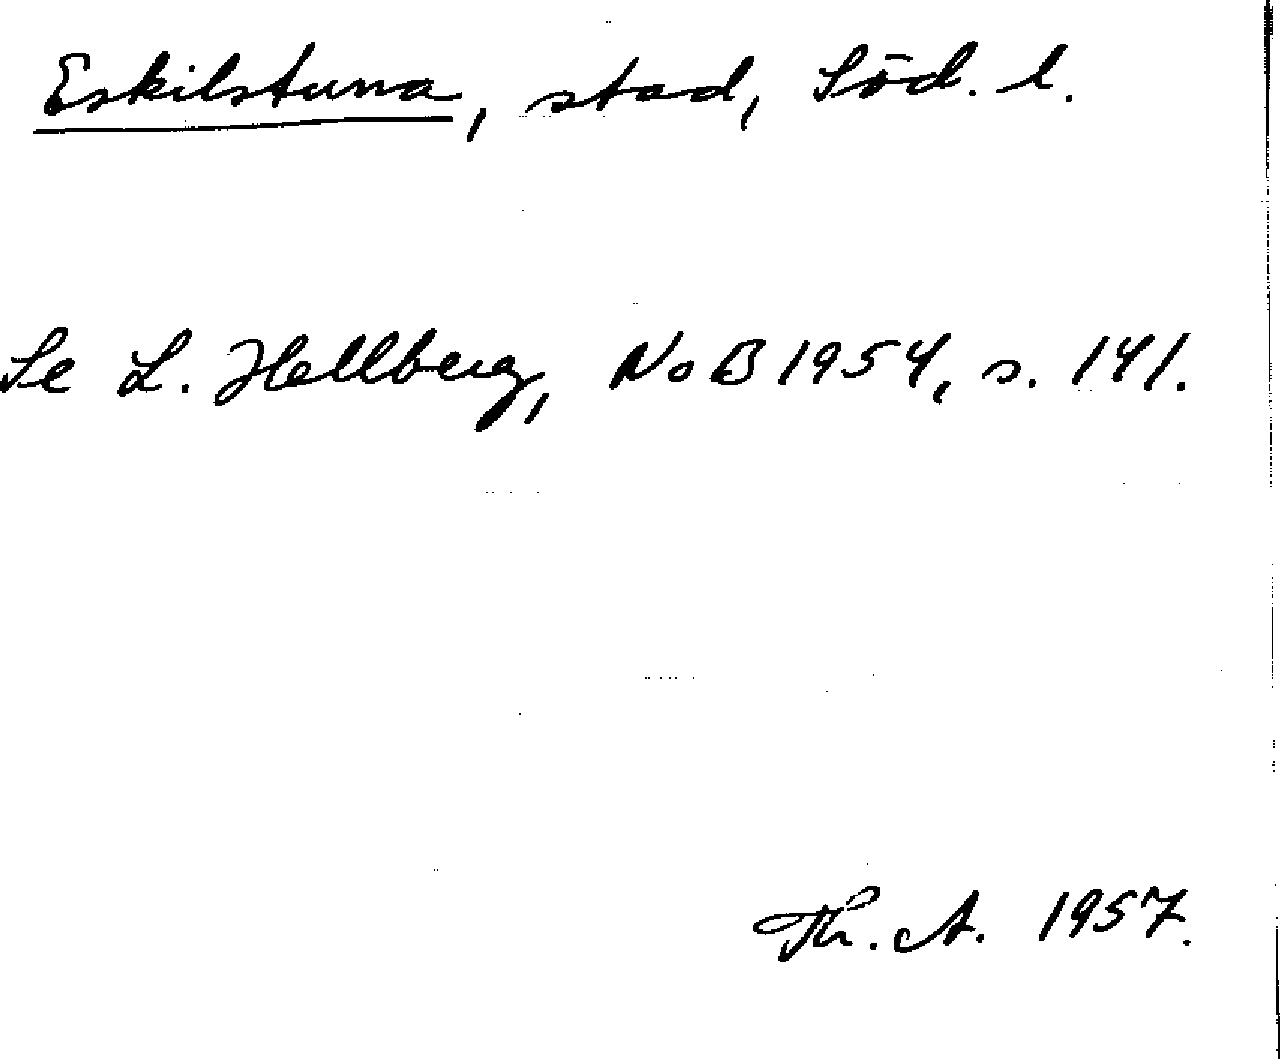 Eskilstuna, stad, Söd. l.
Se L. Hellberg, NoB 1954, s. 141.
Th. A. 1957.